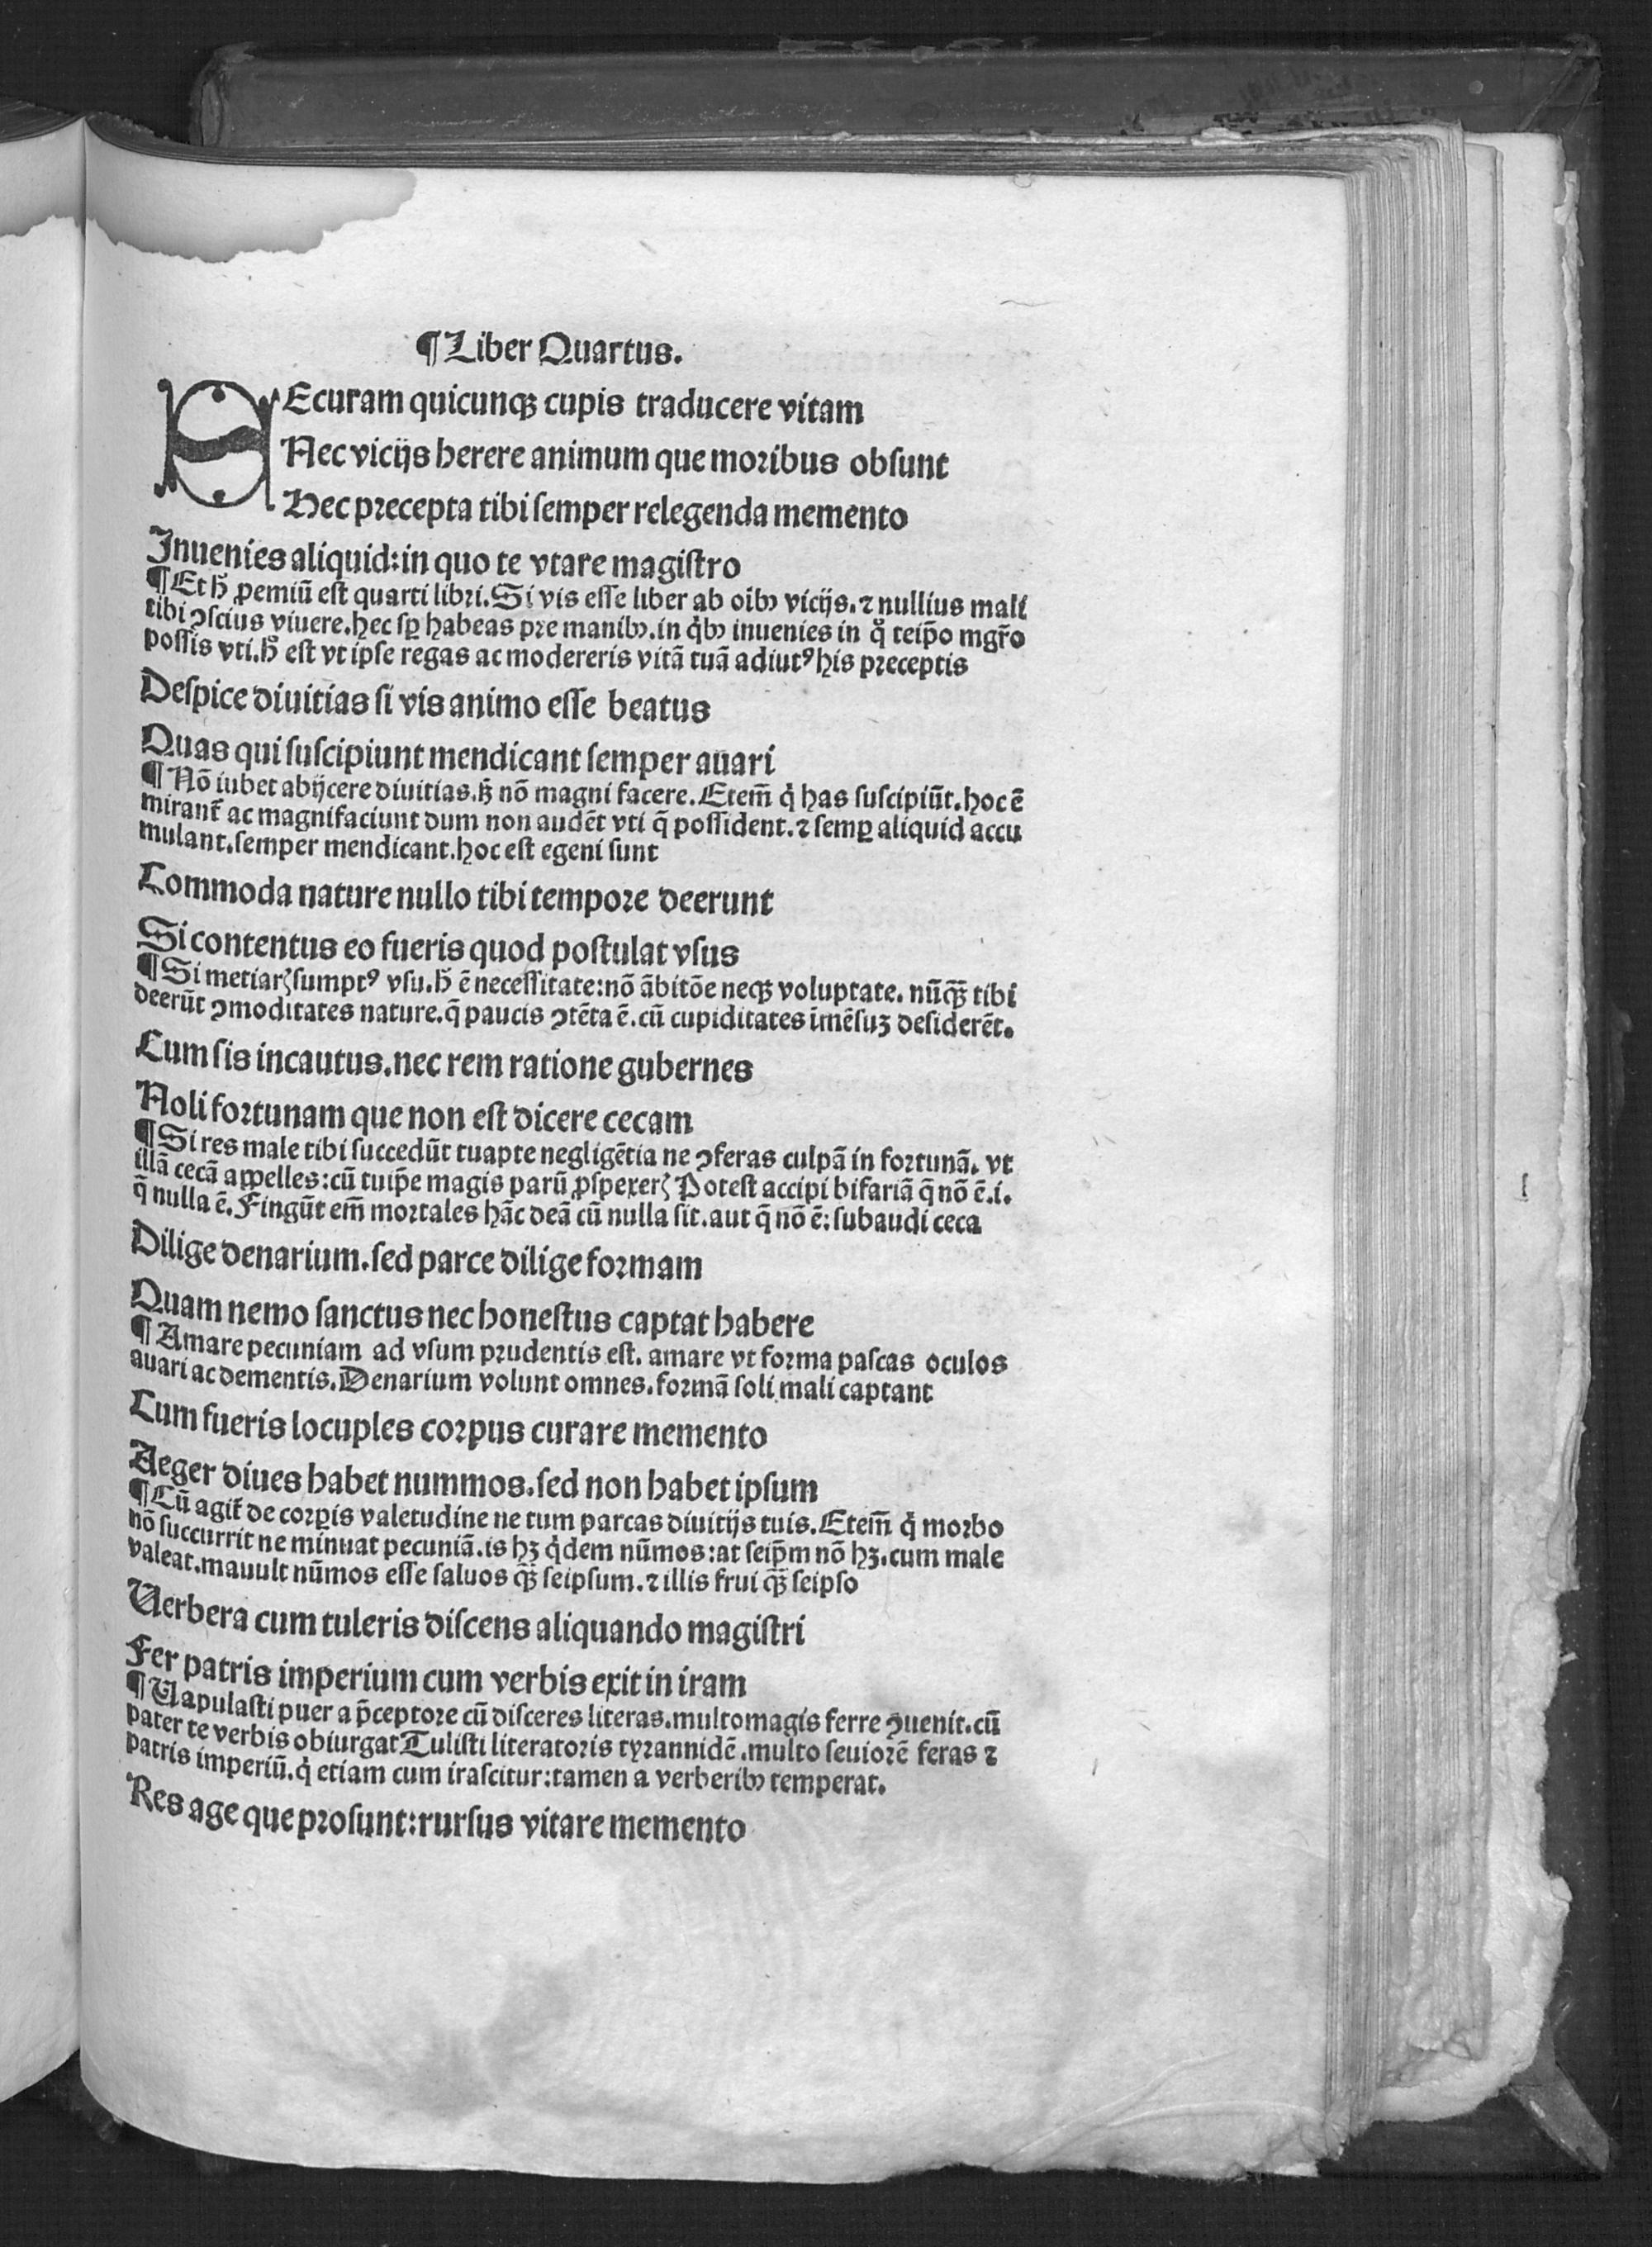 ¶ Liber Quartus.
SEcuram quicunqꝫ cupis traducere vitam
Nec vicijs herere animum que moribus obsunt
Hec precepta tibi semper relegenda memento
Inuenies aliquid: in quo te vtare magistro
¶ Et hͦ ꝓemiū est quarti libri. Si vis esse liber ab oībꝰ vicijs. ⁊ nullius mali
tibi ꝯscius viuere. hec sꝑ habeas pre manibꝰ. in qͥbꝰ inuenies in qͦ teip̄o mgr̄o
possis vti. hͦ est vt ipse regas ac modereris vitā tuā adiutꝰ his preceptis
Despice diuitias si vis animo esse beatus
Quas qui suscipiunt mendicant semper auari
¶ Nō iubet abijcere diuitias. sꝫ nō magni facere. Etem̄ qͥ has suscipiūt. hoc ē
mirant᷑ ac magnifaciunt dum non audēt vti q̄ possident. ⁊ semꝑ aliquid accu
mulant. semper mendicant. hoc est egeni sunt
Commoda nature nullo tibi tempore deerunt
Si contentus eo fueris quod postulat vsus
¶ Si metiarꝭ sumptꝰ vsu. hͦ ē necessitate: nō ābitōe neqꝫ voluptate. nūqꝫ̄ tibi
deerūt ꝯmoditates nature. q̄ paucis ꝯtēta ē. cū cupiditates īmēsuꝫ desiderēt.
Cum sis incautus. nec rem ratione gubernes
Noli fortunam que non est dicere cecam
¶ Si res male tibi succedūt tuapte negligētia ne ꝯferas culpā in fortunā. vt
illā cecā appelles: cū tuip̄e magis parū ꝓspexerꝭ Potest accipi bifariā q̄ nō ē. i.
q̄ nulla ē. Fingūt em̄ mortales hāc deā cū nulla sit. aut q̄ nō ē: subaudi ceca
Dilige denarium. sed parce dilige formam
Quam nemo sanctus nec honestus captat habere
¶ Amare pecuniam ad vsum prudentis est. amare vt forma pascas oculos
auari ac dementis. Denarium volunt omnes. formā soli mali captant
Cum fueris locuples corpus curare memento
Aeger diues habet nummos. sed non habet ipsum
¶ Cū agit᷑ de corꝑis valetudine ne tum parcas diuitijs tuis. Etem̄ qͥ morbo
nō succurrit ne minuat pecuniā. is hꝫ qͥdem nūmos: at seip̄m nō hꝫ. cum male
valeat. mauult nūmos esse saluos qꝫ̄ seipsum. ⁊ illis frui qꝫ̄ seipso
Verbera cum tuleris discens aliquando magistri
Fer patris imperium cum verbis exit in iram
¶ Vapulasti puer a p̄ceptore cū disceres literas. multomagis ferre ꝯuenit. cū
pater te verbis obiurgat Tulisti literatoris tyrannidē. multo seuiorē feras ⁊
patris imperiū. qͥ etiam cum irascitur: tamen a verberibꝰ temperat.
Res age que prosunt: rursus vitare memento